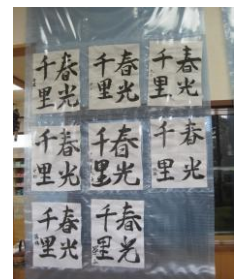 春光
千里
春光
千里
春光
千里
春光
千里
春光
千里
春光
千里
春光
千里
春光
千里